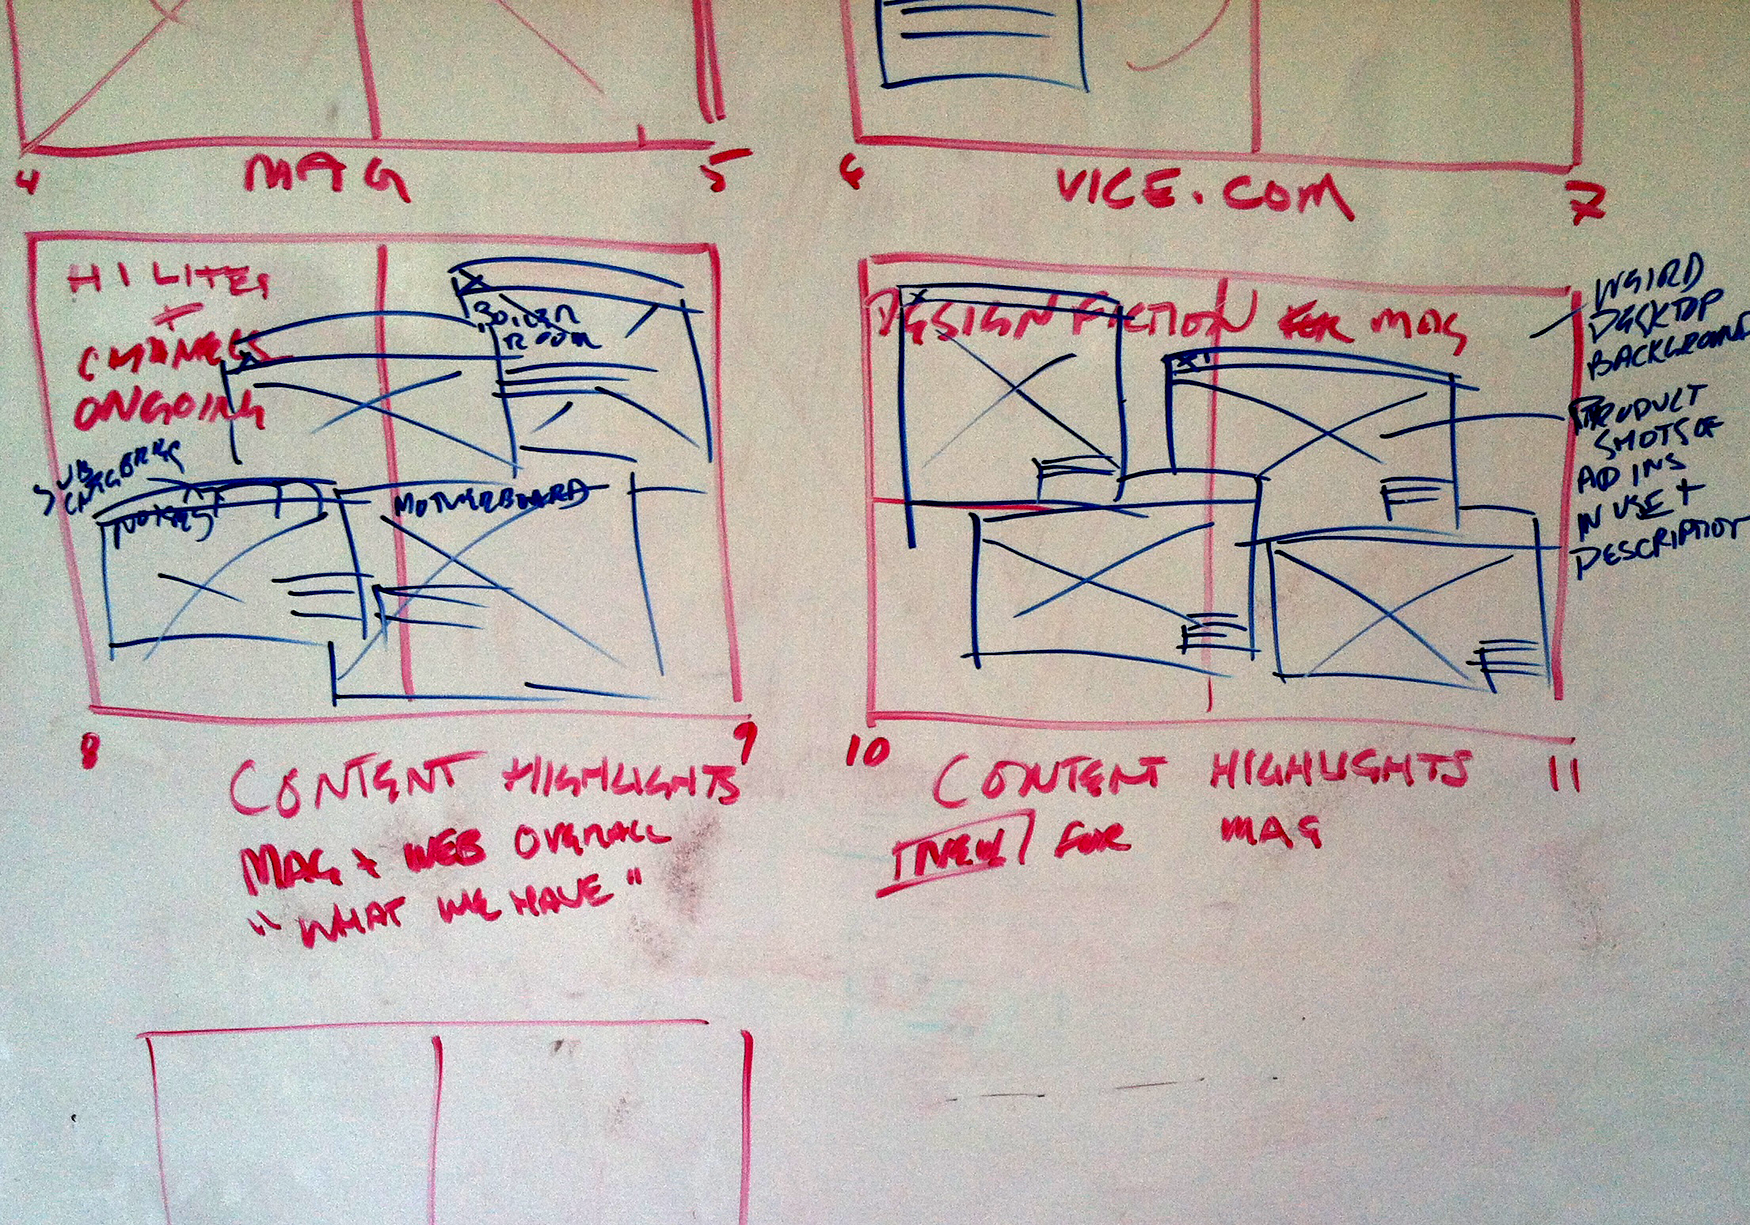 4
MAG
5
6
VICE.COM
7
HI LITES
+
CHANGES
ONGOING
BOILER
ROOM
SUB
CATEGORIES
NOISEY
MOTHERBOARD
8
9
CONTENT HIGHLIGHTS
MAG + WEB OVERALL
"WHAT WE HAVE"
DESIGN FICTION FOR MAG
WEIRD
DESKTOP
BACKGROUND
PRODUCT
SHOTS OF
AD INS
IN USE +
DESCRIPTION
10
11
CONTENT HIGHLIGHTS
NEW FOR MAG